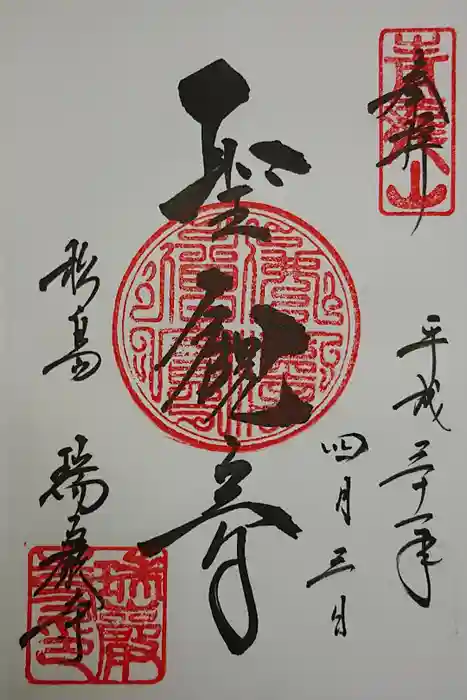 奉拝
青龍山
平成三十一年
四月三日
聖観音
松島 瑞巌寺